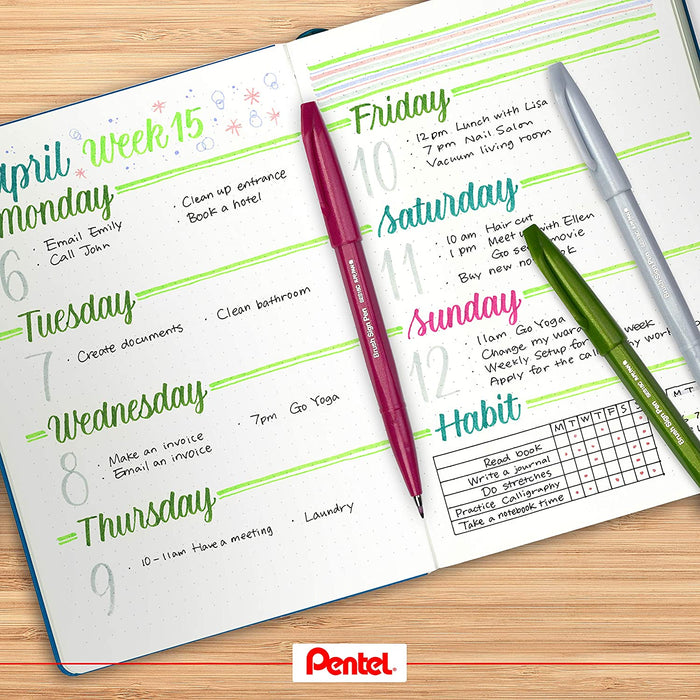 April Week 15
Monday
6
· Email Emily
Call John
· Clean up entrance
Book a hotel
Tuesday
7
· Create documents
· Clean bathroom
Wednesday
8
· Make an invoice
· Email an invoice
· 7pm Go Yoga
Thursday
9
· 10-11am Have a meeting
· Laundry
Friday
10
· 12pm Lunch with Lisa
· 7 pm Nail Salon
· Vacuum living room
Saturday
11
· 10 am Hair cut
· 1 pm Meet up with Ellen
Go see movie
Buy new book
Sunday
12
11am Go Yoga
Change my week
Weekly Setup for
Apply for the work
Habit
M T W T F S S
Read book
Write a journal
Do stretches
Practice Calligraphy
Take a notebook time
M T
Brush Sign Pen
Brush Sign Pen
Brush Sign Pen
Pentel